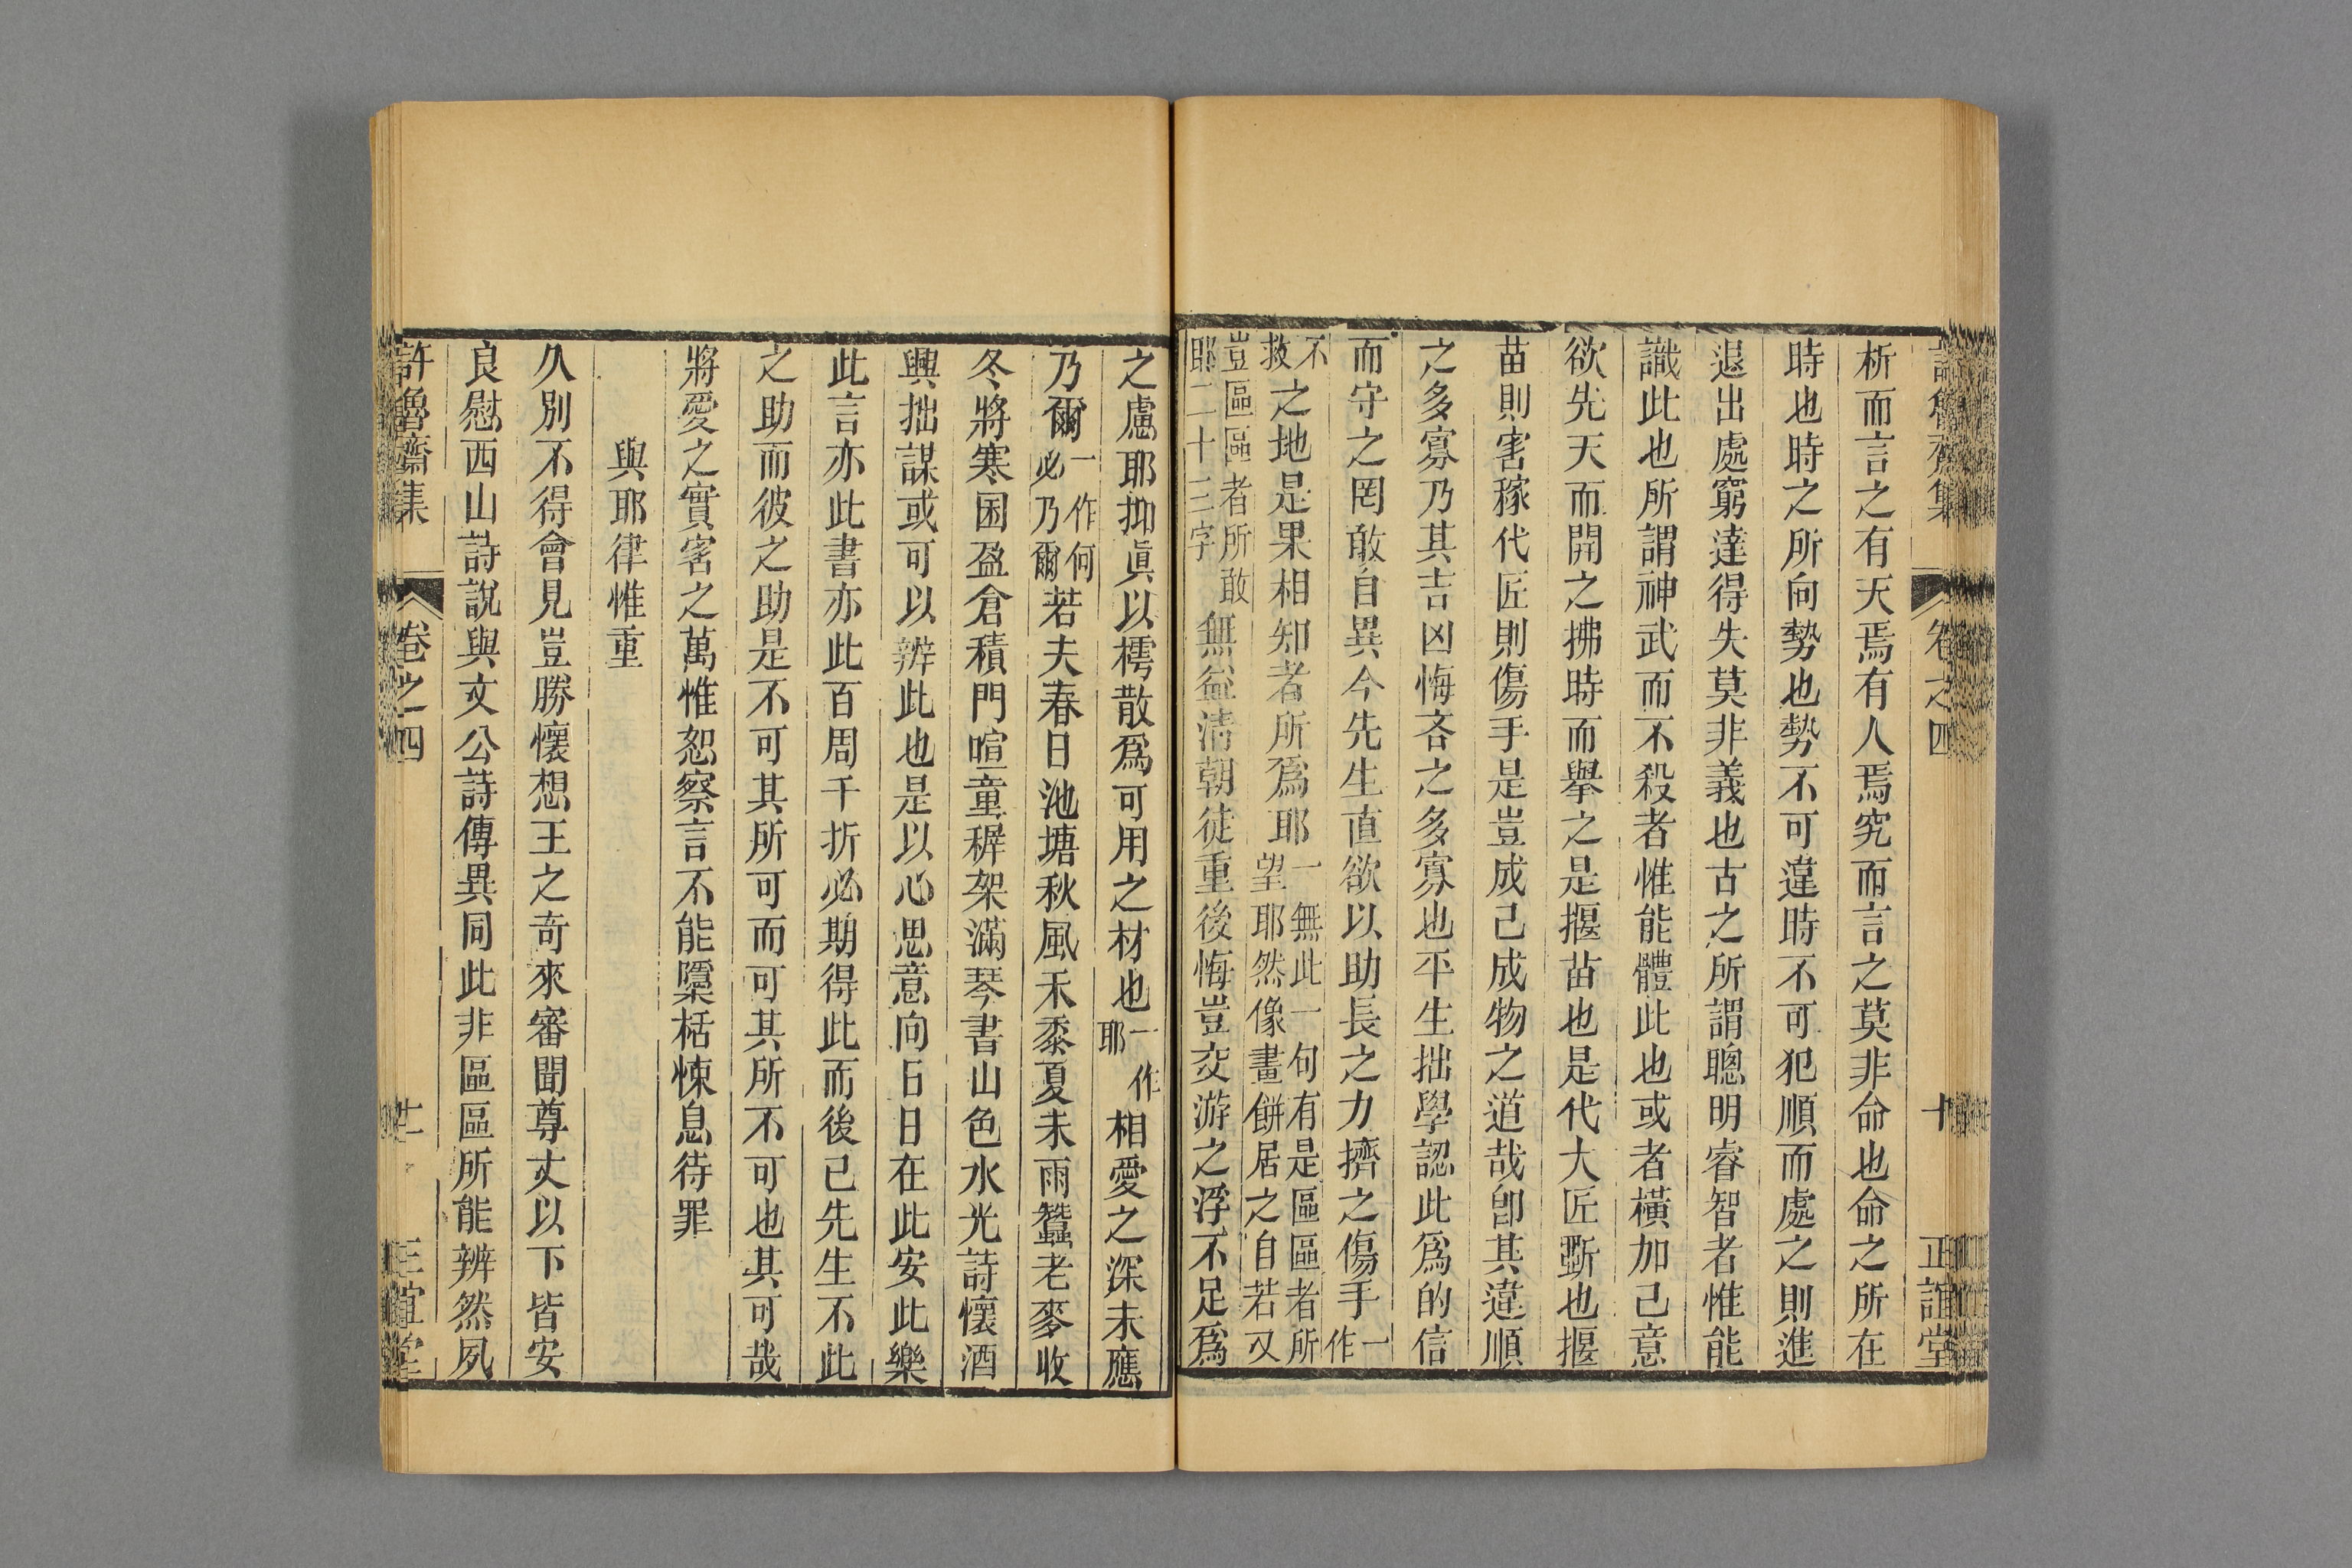 許魯齋集 卷之四 十 正誼堂
析而言之有天焉有人焉究而言之莫非命也命之所在
時也時之所向勢也勢不可違時不可犯順而處之則進
退出處窮達得失莫非義也古之所謂聰明睿智者惟能
識此也所謂神武而不殺者惟能體此也或者橫加己意
欲先天而開之拂時而舉之是揠苗也是代大匠斲也揠
苗則害稼代匠則傷手是豈成己成物之道哉卽其違順
之多寡乃其吉凶悔吝之多寡也平生拙學認此爲的信
而守之罔敢自異今先生直欲以助長之力擠之傷手一作
不救之地是果相知者所爲耶一無此一句有是區區者所望耶然像畫餅居之自若又
豈區區者所敢耶二十三字無益淸朝徒重後悔豈交游之浮不足爲
之慮耶抑眞以樗散爲可用之材也一作耶相愛之深未應
乃爾一作何必乃爾若夫春日池塘秋風禾黍夏未雨蠶老麥收
冬將寒囷盈倉積門喧童穉架滿琴書山色水光詩懷酒
興拙謀或可以辨此也是以心思意向日日在此安此樂
此言亦此書亦此百周千折必期得此而後已先生不此
之助而彼之助是不可其所可而可其所不可也其可哉
將愛之實害之萬惟恕察言不能櫽栝悚息待罪
與耶律惟重
久別不得會見豈勝懷想王之奇來審聞尊丈以下皆安
良慰西山詩說與文公詩傳異同此非區區所能辨然夙
許魯齋集 卷之四 十一 正誼堂